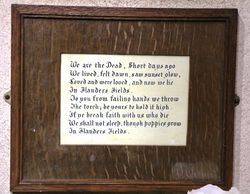 We are the Dead, Short days ago
We lived, felt dawn, saw sunset glow,
Loved and were loved, and now we lie
In Flanders Fields.
To you from failing hands we throw
The torch; be yours to hold it high.
If ye break faith with us who die
We shall not sleep, though poppies grow
In Flanders Fields.